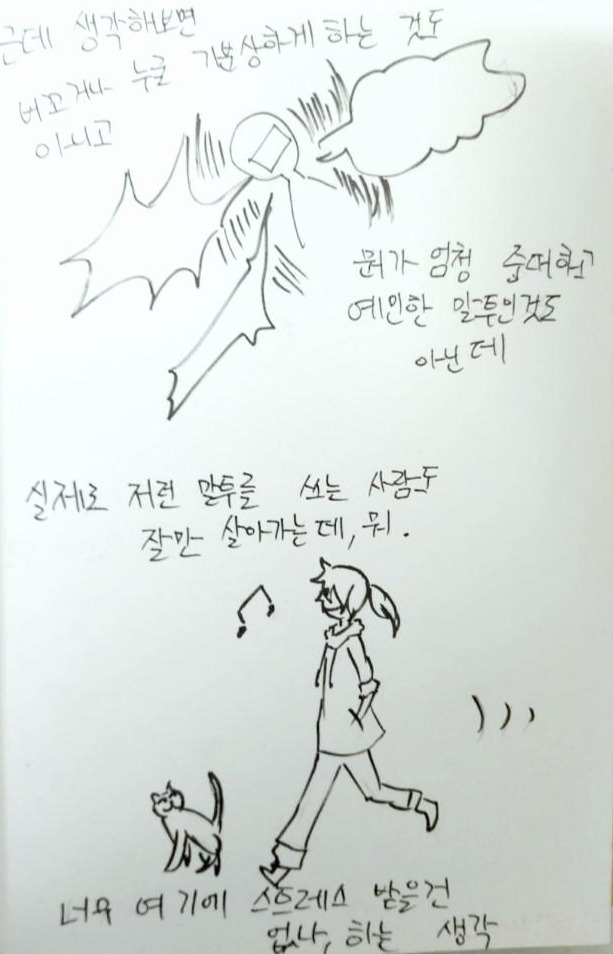 근데 생각해보면
누굴 기분상하게 하는 것도
아니고
뭔가 엄청 중대하고
예민한 말투인것도
아닌데
실제로 저런 말투를 쓰는 사람도
잘만 살아가는데, 뭐.
너무 여기에 스트레스 받을건
없나, 하는 생각